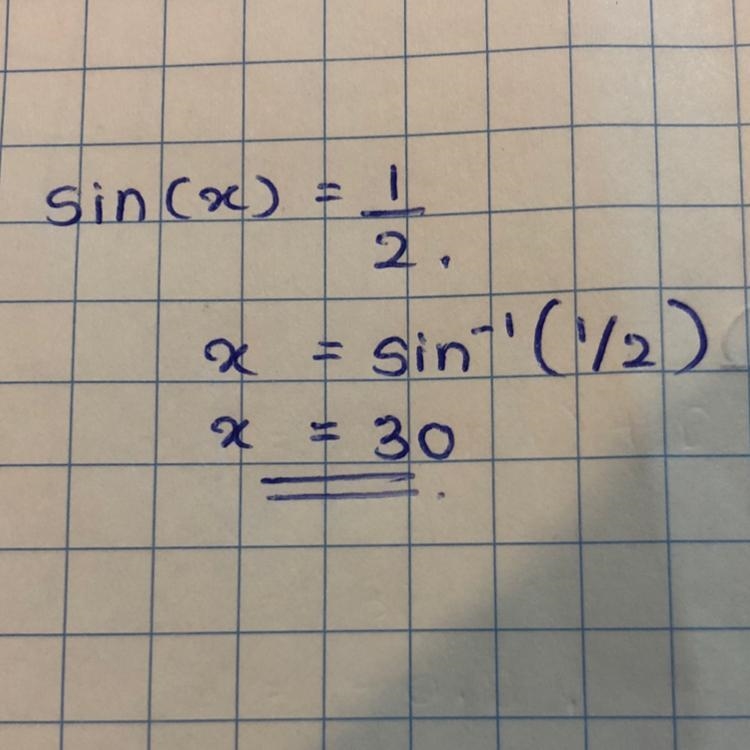 sin(x) = 1/2.
x = sin⁻¹(1/2)
x = 30.